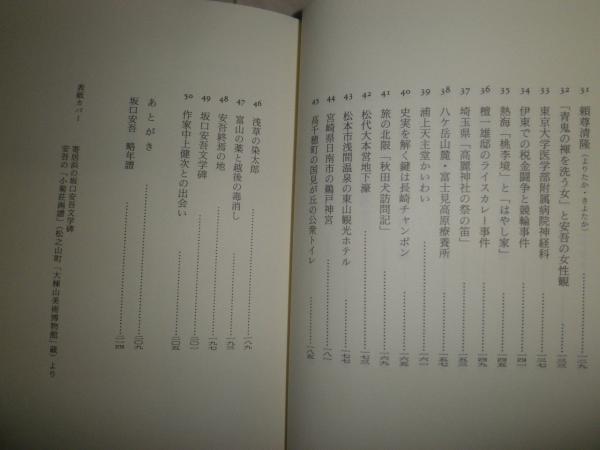 31 頼尊清隆(よりたか・きよたか)……一二九
32 「青鬼の褌を洗う女」と安吾の女性観……一三二
33 東京大学医学部附属病院神経科……一三七
34 伊東での税金闘争と競輪事件……一四一
35 熱海「桃李境」と「はやし家」……一四五
36 檀一雄邸のライスカレー事件……一四九
37 埼玉県「高麗神社の祭の笛」……一五三
38 八ケ岳山麓・富士見高原療養所……一五七
39 浦上天主堂かいわい……一六一
40 史実を解く鍵は長崎チャンポン……一六五
41 旅の北限「秋田犬訪問記」……一六九
42 松代大本営地下壕……一七三
43 松本市浅間温泉の東山観光ホテル……一七七
44 宮崎県日南市の鵜戸神宮……一八一
45 高千穂町の国見が丘の公衆トイレ……一八五
46 浅草の染太郎……一八九
47 富山の薬と越後の毒消し……一九三
48 安吾終焉の地
49 坂口安吾文学碑……一九七
50 作家中上健次との出会い……二〇五
あとがき……二〇九
坂口安吾 略年譜……二一四
表紙カバー
寄居浜の坂口安吾文学碑
安吾の「小菊荘画譜」(松之山町「大棟山美術博物館」蔵)より